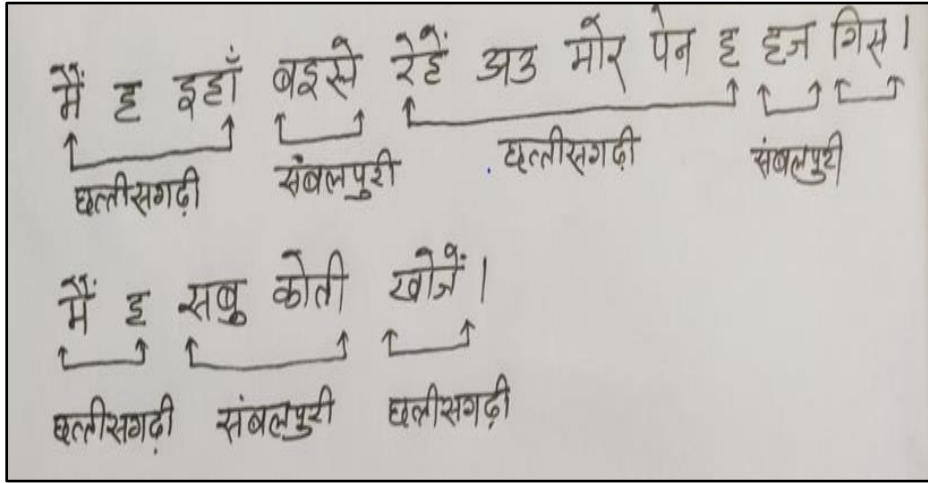 मैं ह इहाँ बइसे रेहें अउ मोर पेन ह हज गिस।
छत्तीसगढ़ी संबलपुरी छत्तीसगढ़ी संबलपुरी
मैं ह सबु कोती खोजें।
छत्तीसगढ़ी संबलपुरी छत्तीसगढ़ी